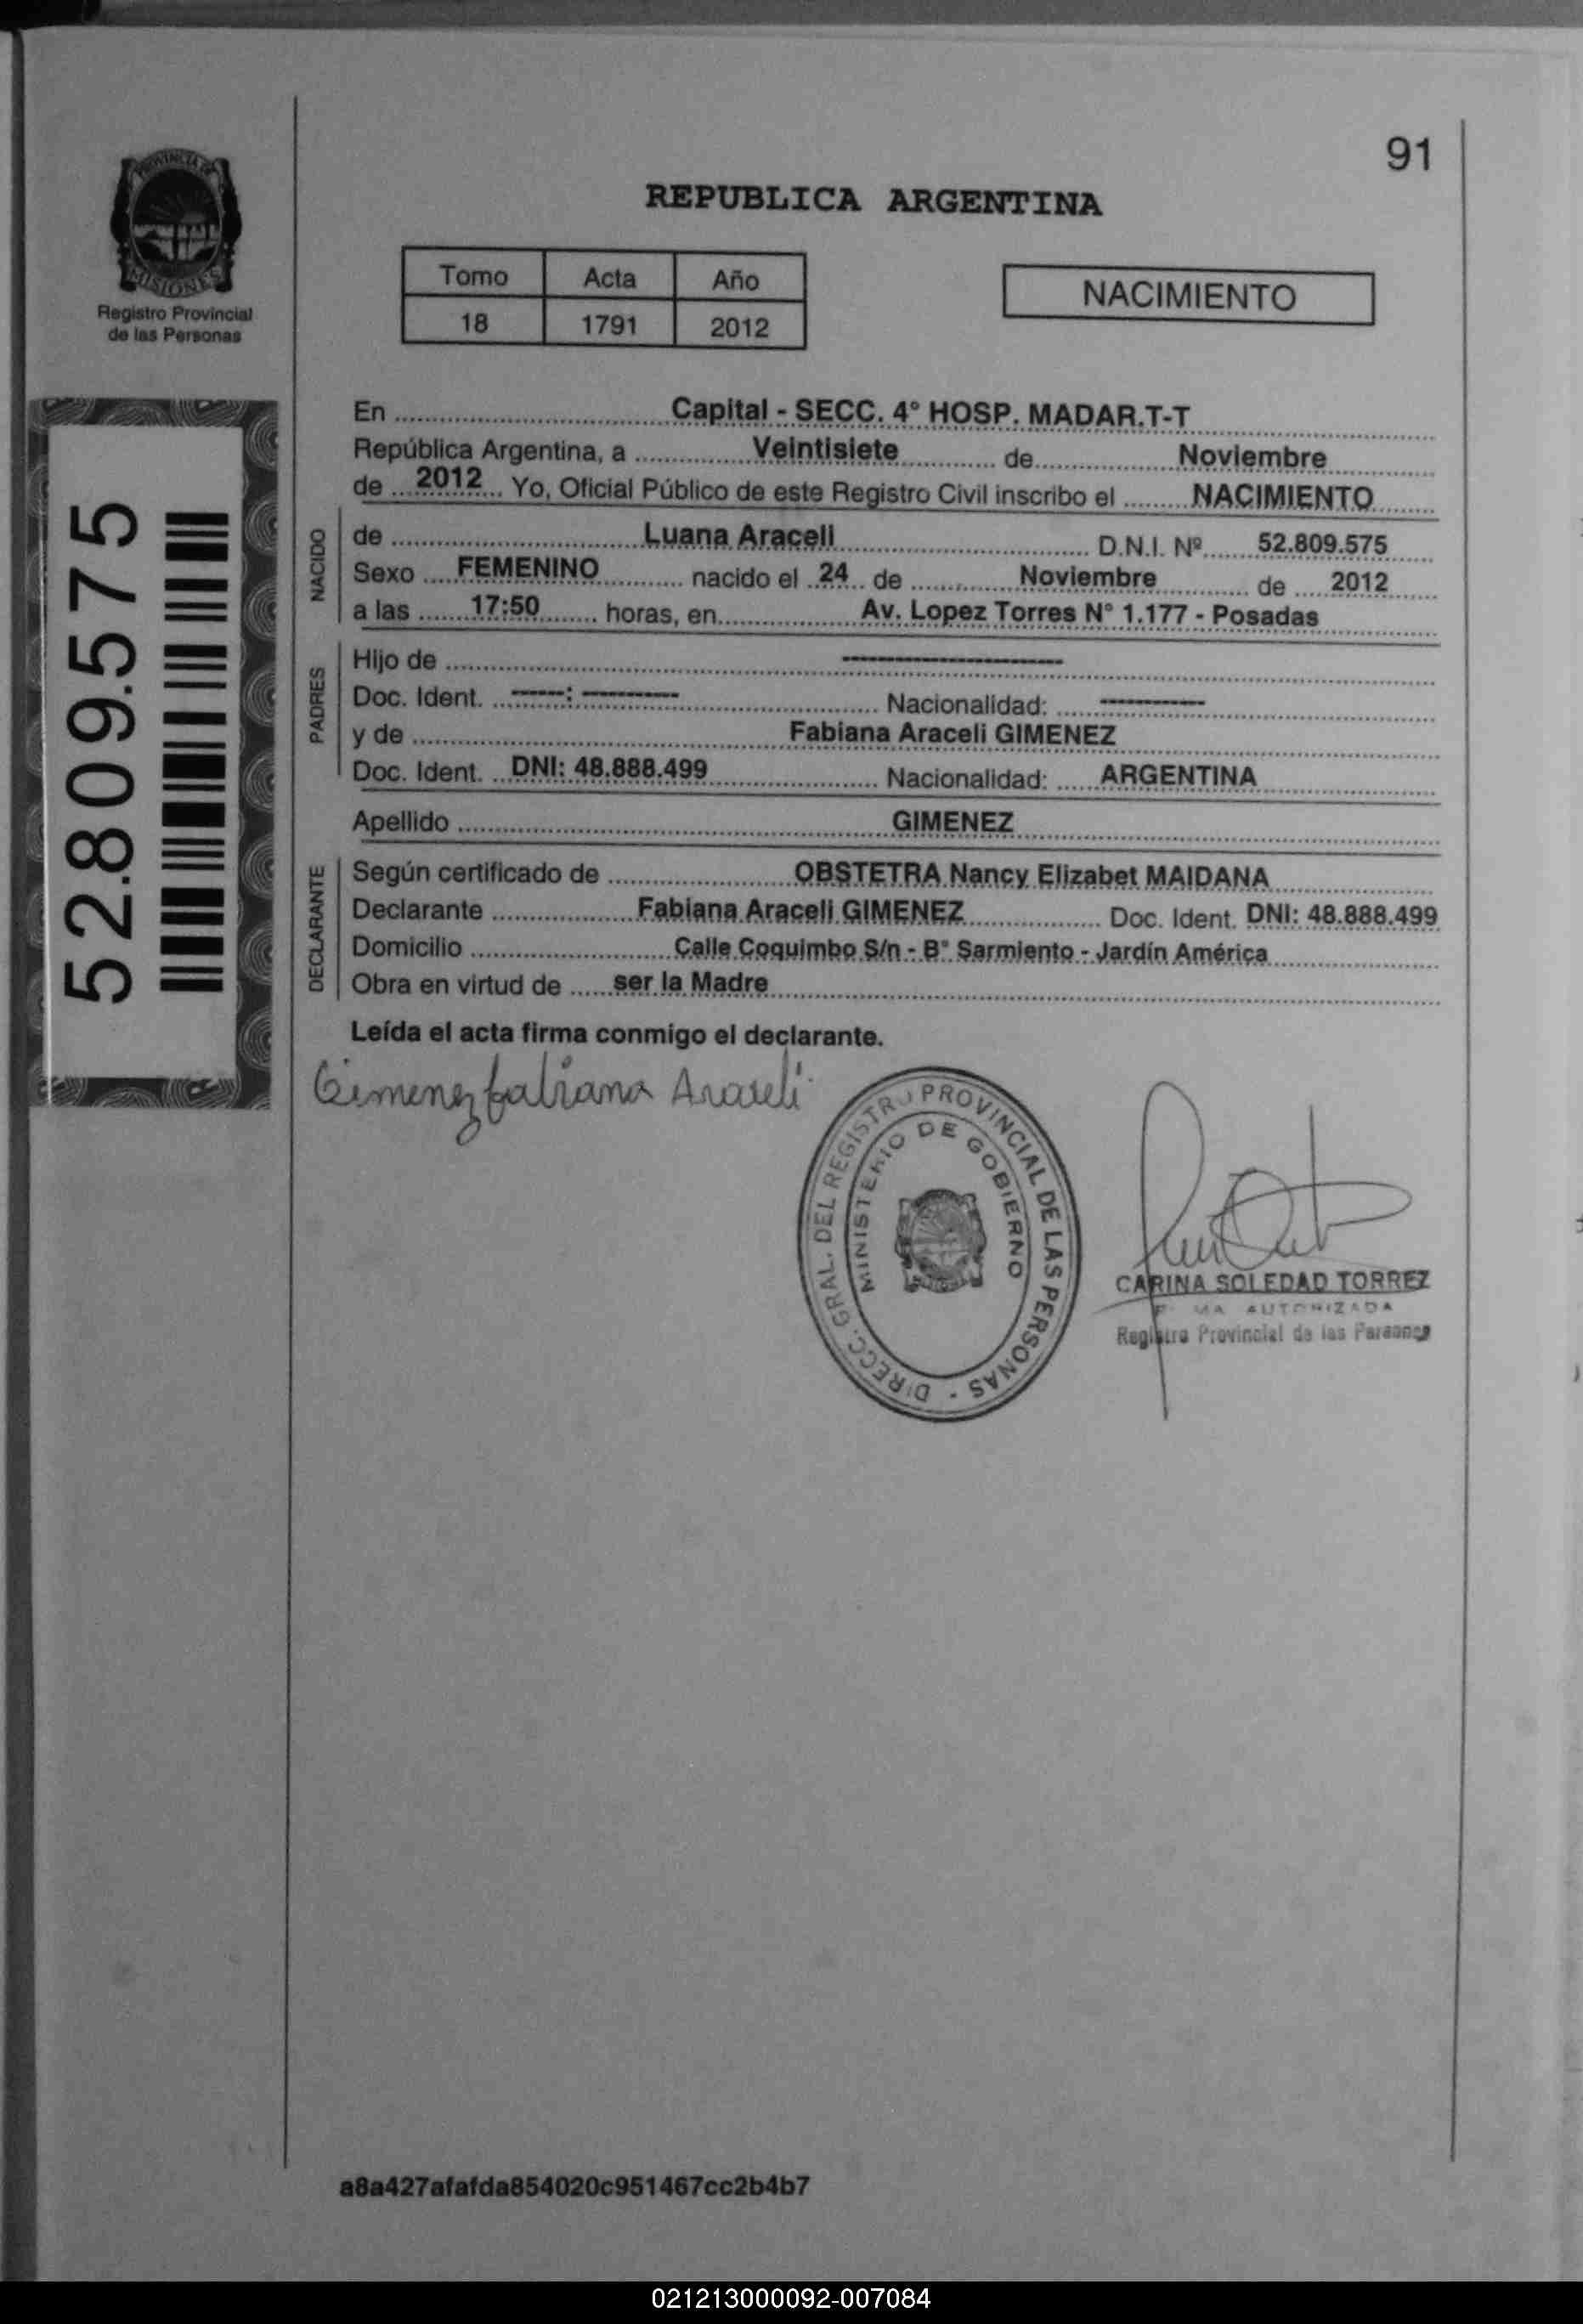 91
PROVINCIA DE
MISIONES
Registro Provincial
de las Personas
REPUBLICA ARGENTINA
Tomo Acta Año
18 1791 2012
NACIMIENTO
52.809.575
En Capital - SECC. 4° HOSP. MADAR.T-T
República Argentina, a Veintisiete de Noviembre
de 2012 Yo, Oficial Público de este Registro Civil inscribo el NACIMIENTO
NACIDO
de Luana Araceli D.N.I. Nº 52.809.575
Sexo FEMENINO nacido el 24 de Noviembre de 2012
a las 17:50 horas, en Av. Lopez Torres N° 1.177 - Posadas
PADRES
Hijo de --------------------
Doc. Ident. -----: --------- Nacionalidad: ----------
y de Fabiana Araceli GIMENEZ
Doc. Ident. DNI: 48.888.499 Nacionalidad: ARGENTINA
Apellido GIMENEZ
DECLARANTE
Según certificado de OBSTETRA Nancy Elizabet MAIDANA
Declarante Fabiana Araceli GIMENEZ Doc. Ident. DNI: 48.888.499
Domicilio Calle Coquimbo S/n - B° Sarmiento - Jardín América
Obra en virtud de ser la Madre
Leída el acta firma conmigo el declarante.
Gimenez fabiana Araseli
DIRECC. GRAL. DEL REGISTRO PROVINCIAL DE LAS PERSONAS -
MINISTERIO DE GOBIERNO
CARINA SOLEDAD TORREZ
AUTORIZADA
Registro Provincial de las Personas
a8a427afafda854020c951467cc2b4b7
021213000092-007084